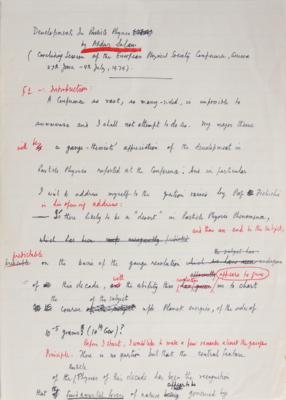 Developments In Particle Physics
by Abdus Salam
(Concluding Session of the European Physical Society Conference, Geneva
27th June - 4th July, 1979)
§1 - Introduction
A Conference as vast, as many-sided, is impossible to
summarise and I shall not attempt to do so. My major theme
will be a gauge-theorist's appreciation of the development in
Particle Physics reported at the Conference. And in particular
I wish to address myself to the question raised by Prof
in his opening address:
Is there likely to be a "desert" in Particle Physics Phenomena,
and thus an end to the subject,
which has been
predictable on the basis of the gauge revolution which
appears to give
of this decade, with the ability this to us to chart
the course of the subject upto Planck energies, of the order of
10⁻⁵ grams? (10¹⁹ GeV)?
Before I start, I would like to make a few remarks about the gauge
Principle. There is no question but that the central feature
of the Particle Physics of this decade has been the recognition
that the fundamental forces of nature appear to be governed by